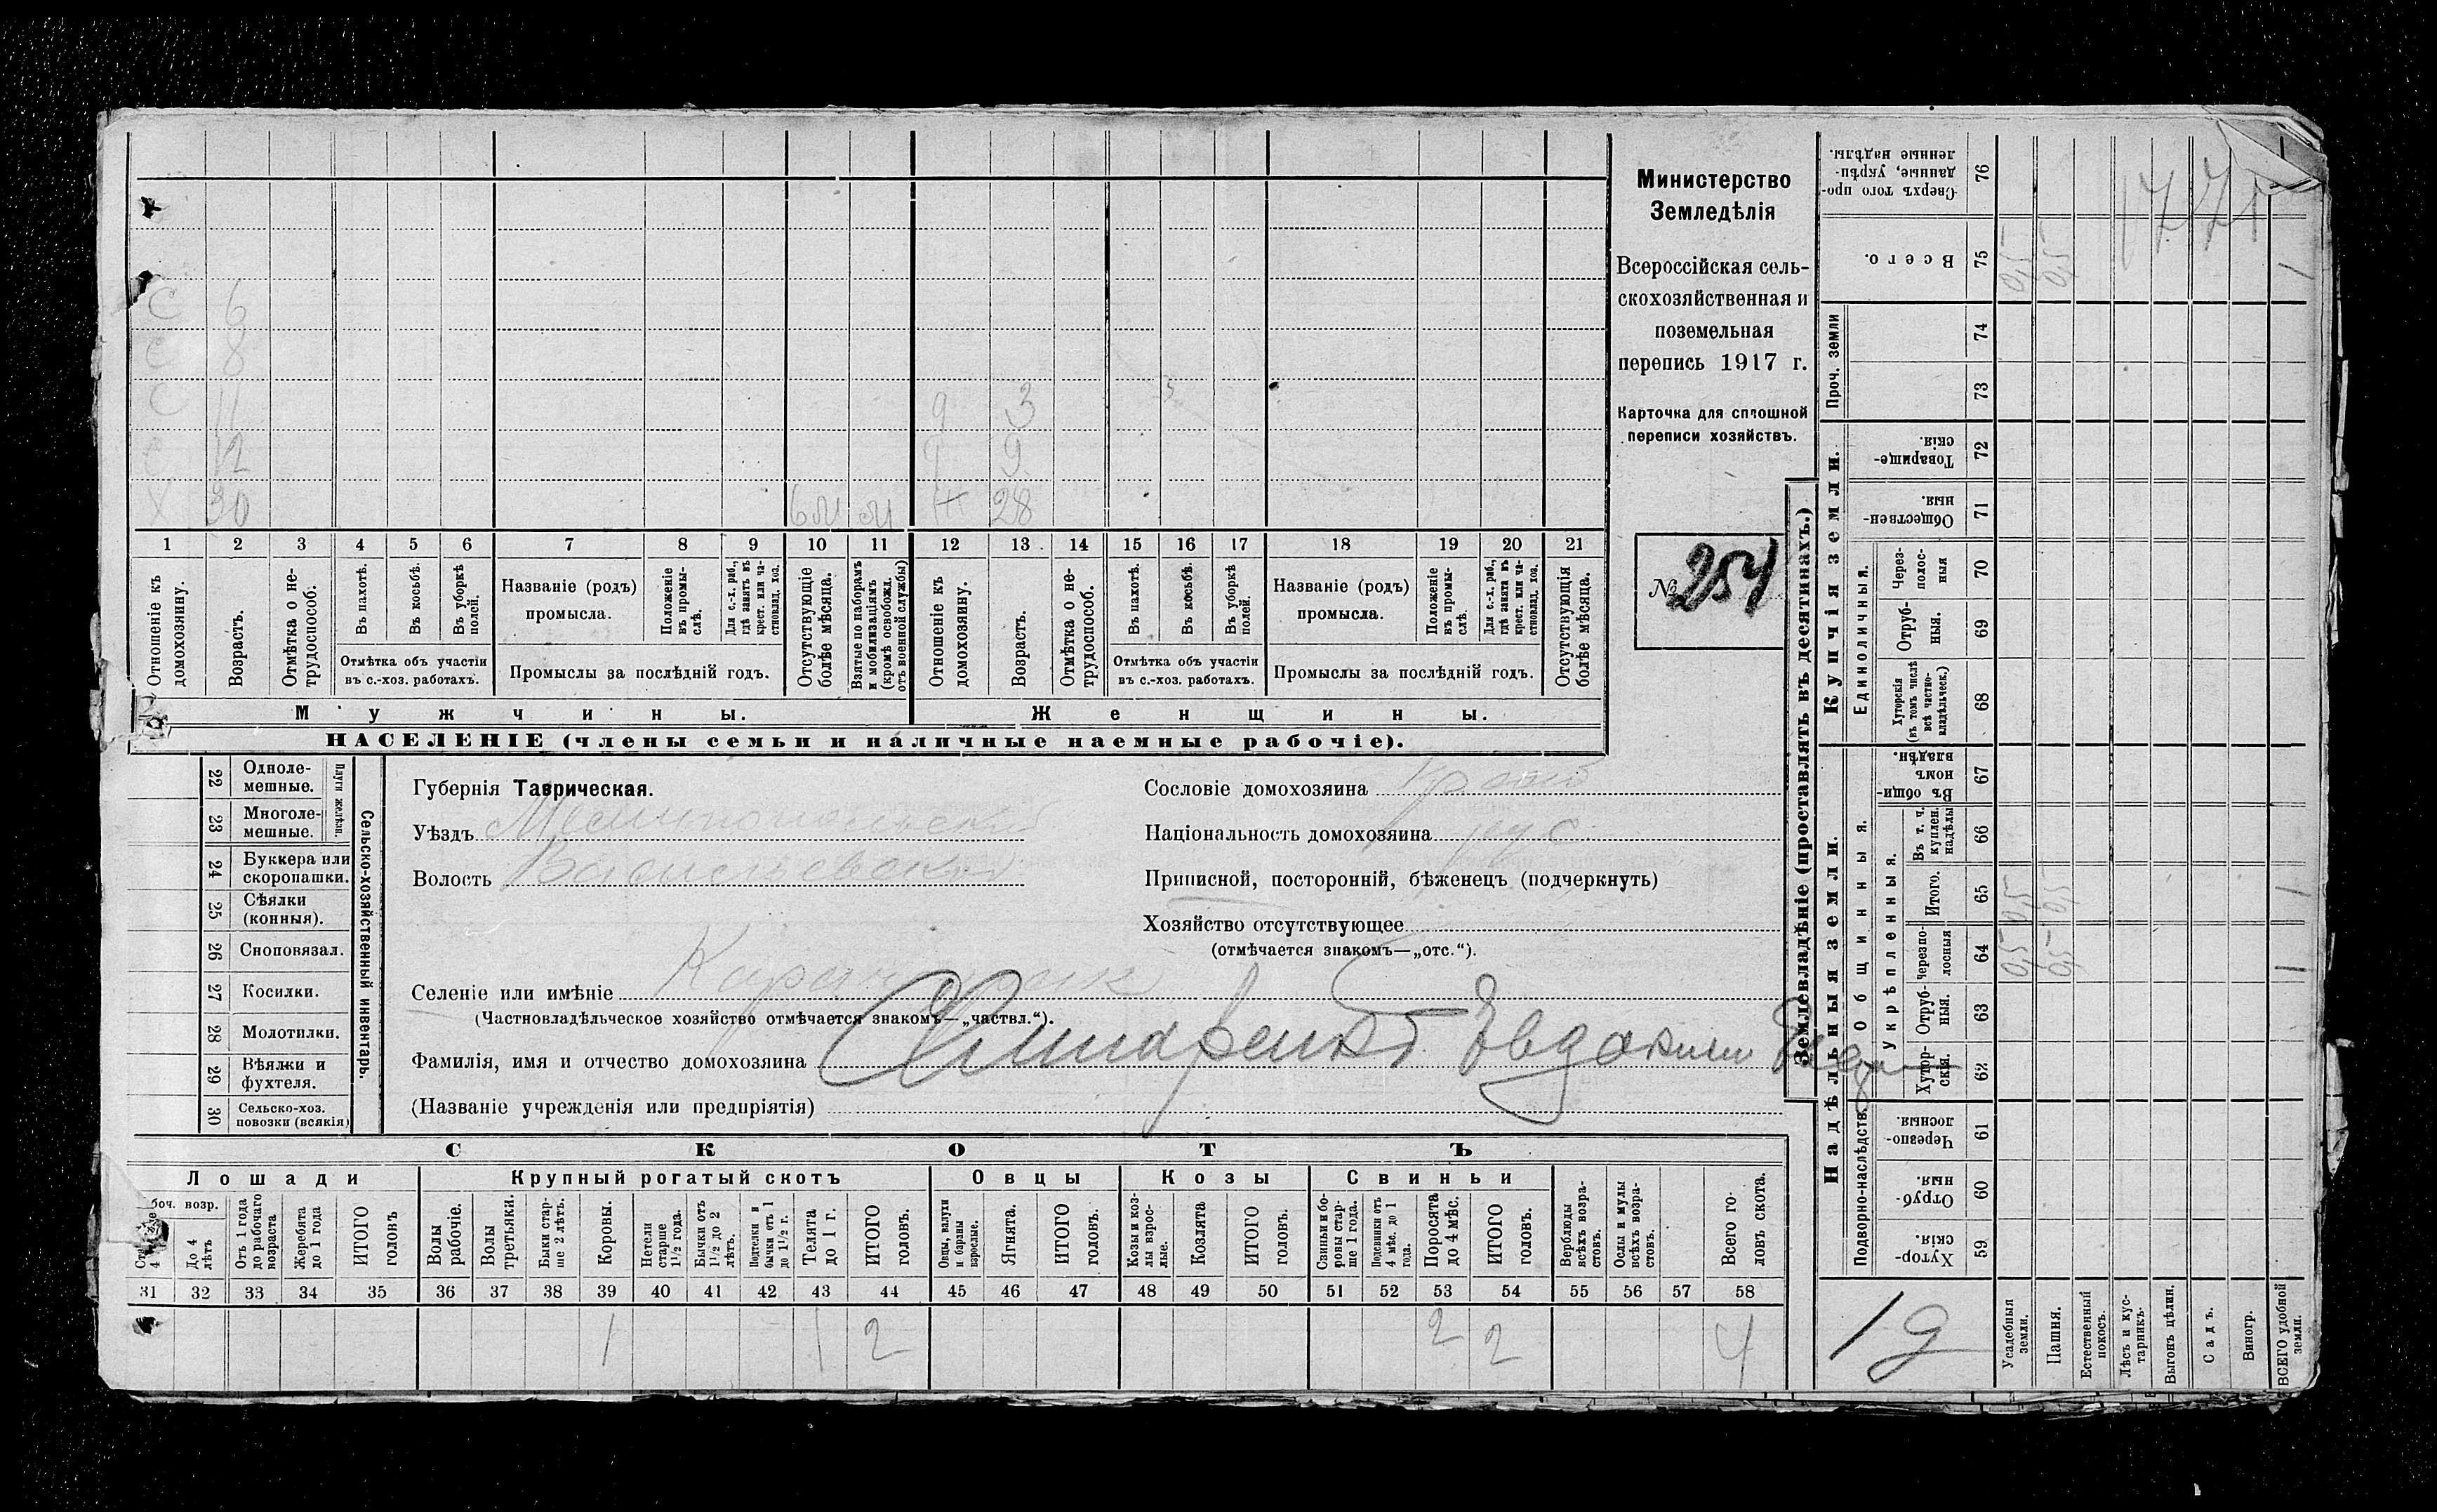 Министерство
Земледѣлія
Всероссійская сель-
скохозяйственная и
поземельная
перепись 1917 г.
Карточка для сплошной
переписи хозяйствъ.
№ 254
С 6
С 8
С 11
С 12
Х 30 6м м
д 3
д 9
Ж 28
1 2 3 4 5 6 7 8 9 10 11 12 13 14 15 16 17 18 19 20 21
Отношеніе къ домохозяину.
Возрастъ.
Отмѣтка о не-трудоспособ.
Въ пахотѣ.
Въ косьбѣ.
Въ уборкѣ полей.
Отмѣтка объ участіи въ с.-хоз. работахъ.
Названіе (родъ) промысла.
Положеніе въ промы-слѣ.
Для с.-х. раб., гдѣ занятъ въ крест. или ча-стновлад. хоз.
Промыслы за послѣдній годъ.
Отсутствующіе болѣе мѣсяца.
Взятые по наборамъ и мобилизаціямъ (кромѣ освобожд. отъ военной службы)
Отношеніе къ домохозяину.
Возрастъ.
Отмѣтка о не-трудоспособ.
Въ пахотѣ.
Въ косьбѣ.
Въ уборкѣ полей.
Отмѣтка объ участіи въ с.-хоз. работахъ.
Названіе (родъ) промысла.
Положеніе въ промы-слѣ.
Для с.-х. раб., гдѣ занята въ крест. или ча-стновлад. хоз.
Промыслы за послѣдній годъ.
Отсутствующія болѣе мѣсяца.
Мужчины.
Женщины.
НАСЕЛЕНІЕ (члены семьи и наличные наемные рабочіе).
22 Одноле-мешные.
23 Многоле-мешные.
Плуги желѣзн.
24 Буккера или скоропашки.
25 Сѣялки (конныя).
26 Сноповязал.
27 Косилки.
28 Молотилки.
29 Вѣялки и фухтеля.
30 Сельско-хоз. повозки (всякія)
Сельско-хозяйственный инвентарь.
Губернія Таврическая.
Уѣздъ Мелитопольскій
Волость Васильевская
Селеніе или имѣніе Карачекрак
(Частновладѣльческое хозяйство отмѣчается знакомъ—„частвл.“).
Фамилія, имя и отчество домохозяина Евдоким
(Названіе учрежденія или предпріятія)
Сословіе домохозяина
Національность домохозяина рус
Приписной, посторонній, бѣженецъ (подчеркнуть)
Хозяйство отсутствующее
(отмѣчается знакомъ—„отс.“).
СКОТЪ
Лошади
Крупный рогатый скотъ
Овцы
Козы
Свиньи
боч. возр.
До 4 лѣтъ
Отъ 1 года до рабочаго возраста
Жеребята до 1 года
ИТОГО головъ
Волы рабочіе.
Волы третьяки.
Быки стар-ше 2 лѣтъ.
Коровы.
Нетели старше 1½ года.
Бычки отъ 1½ до 2 лѣтъ.
Подтелки и бычки отъ 1 до 1½ г.
Телята до 1 г.
ИТОГО головъ.
Овцы, валухи и бараны взрослые.
Ягнята.
ИТОГО головъ.
Козы и коз-лы взрос-лые.
Козлята
ИТОГО головъ.
Свиньи и бо-ровы стар-ше 1 года.
Подсвинки отъ 4 мѣс. до 1 года.
Поросята до 4 мѣс.
ИТОГО головъ.
Верблюды всѣхъ возра-стовъ.
Ослы и мулы всѣхъ возра-стовъ.
Всего го-ловъ скота.
31 32 33 34 35 36 37 38 39 40 41 42 43 44 45 46 47 48 49 50 51 52 53 54 55 56 57 58
1 1 2 2 2 4
Землевладѣніе (проставлять въ десятинахъ.)
Купчія земли.
Надѣльныя земли.
Проч. земли
Единоличныя.
Общинныя.
Укрѣпленныя.
Подворно-наслѣдств.
76 Сверхъ того про-данные, укрѣп-ленные надѣлы.
75 Всего. 0,5 0,5 1
74
73
72 Товарище-скія.
71 Обществен-ныя.
70 Через-полос-ныя
69 Отруб-ныя.
68 Хуторскія (въ томъ числѣ всѣ частно-владѣльческ.)
67 Въ общи-номъ владѣн.
66 Въ т. ч. куплен. надѣлы
65 Итого. 0,5 0,5 1
64 черезпо-лосныя 0,5 0,5 1
63 Отруб-ныя.
62 Хутор-скія.
61 Черезпо-лосныя
60 Отруб-ныя.
59 Хутор-скія.
1771
1д
Усадебныя земли.
Пашня.
Естественный покосъ.
Лѣсъ и кус-тарникъ.
Выгонъ цѣлин.
Садъ.
Виногр.
ВСЕГО удобной земли.